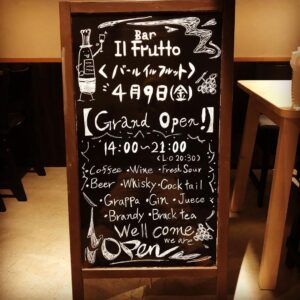 Bar
Il Frutto
〈バールイルフルット〉
4月9日(金)
【Grand Open!】
14:00~21:00
(L.O 20:30)
Coffee・Wine・Fresh Sour
Beer・Whisky・Cocktail
・Grappa・Gin・Juece
・Brandy・Brack tea
Well come
we are
Open